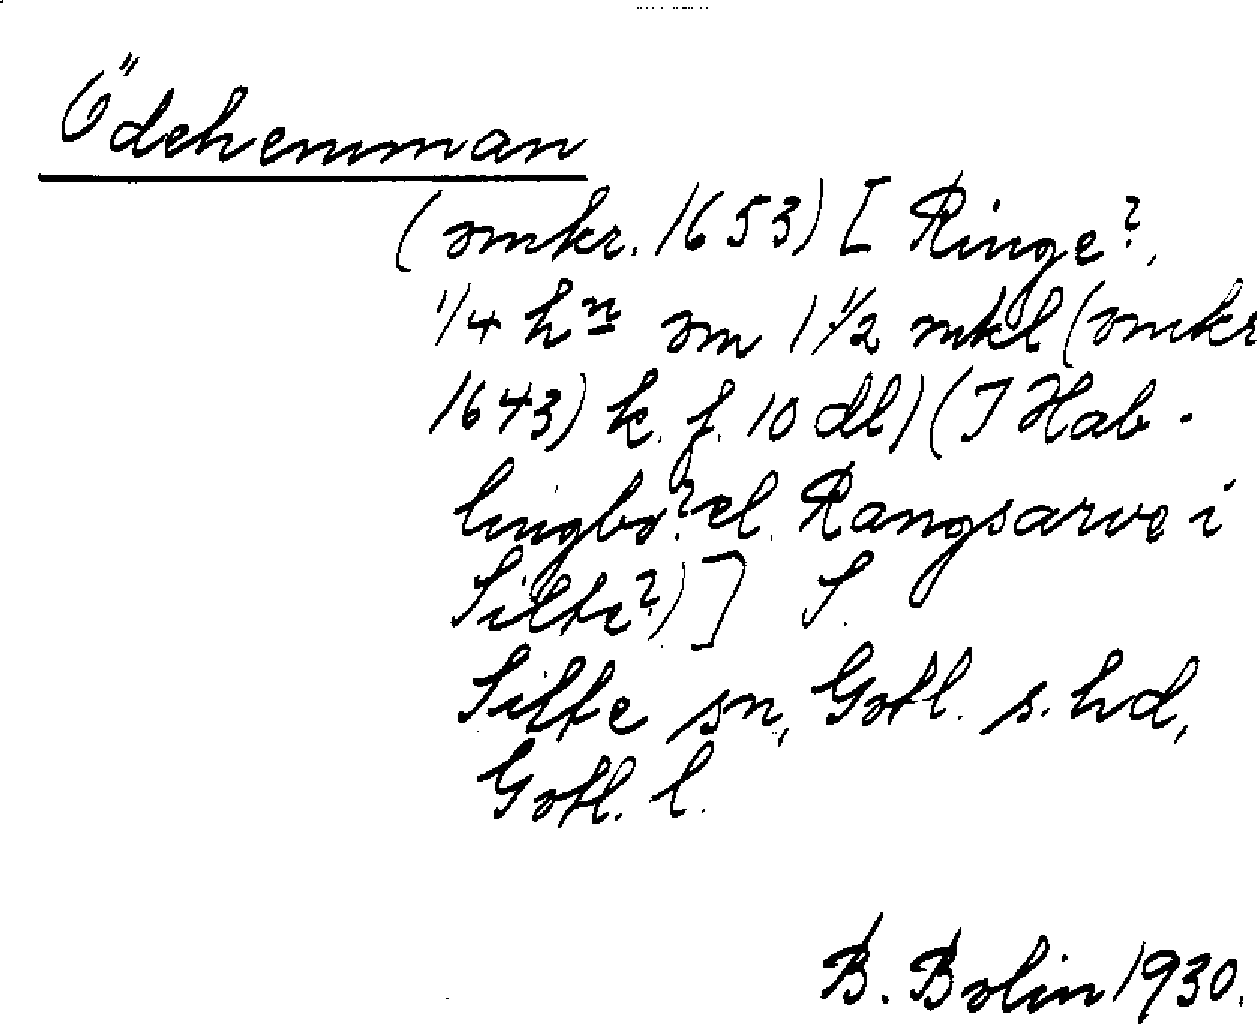 Ödehemman
(omkr. 1653) [Ringe?,
1/4 hn om 1 1/2 mkl (omkr
1643) k. f. 10 dl) (I Hab-
lingbo? el. Rangsarve i
Silte?)] S.
Silte sn, Gotl. s. hd,
Gotl. l.
B. Bolin 1930.